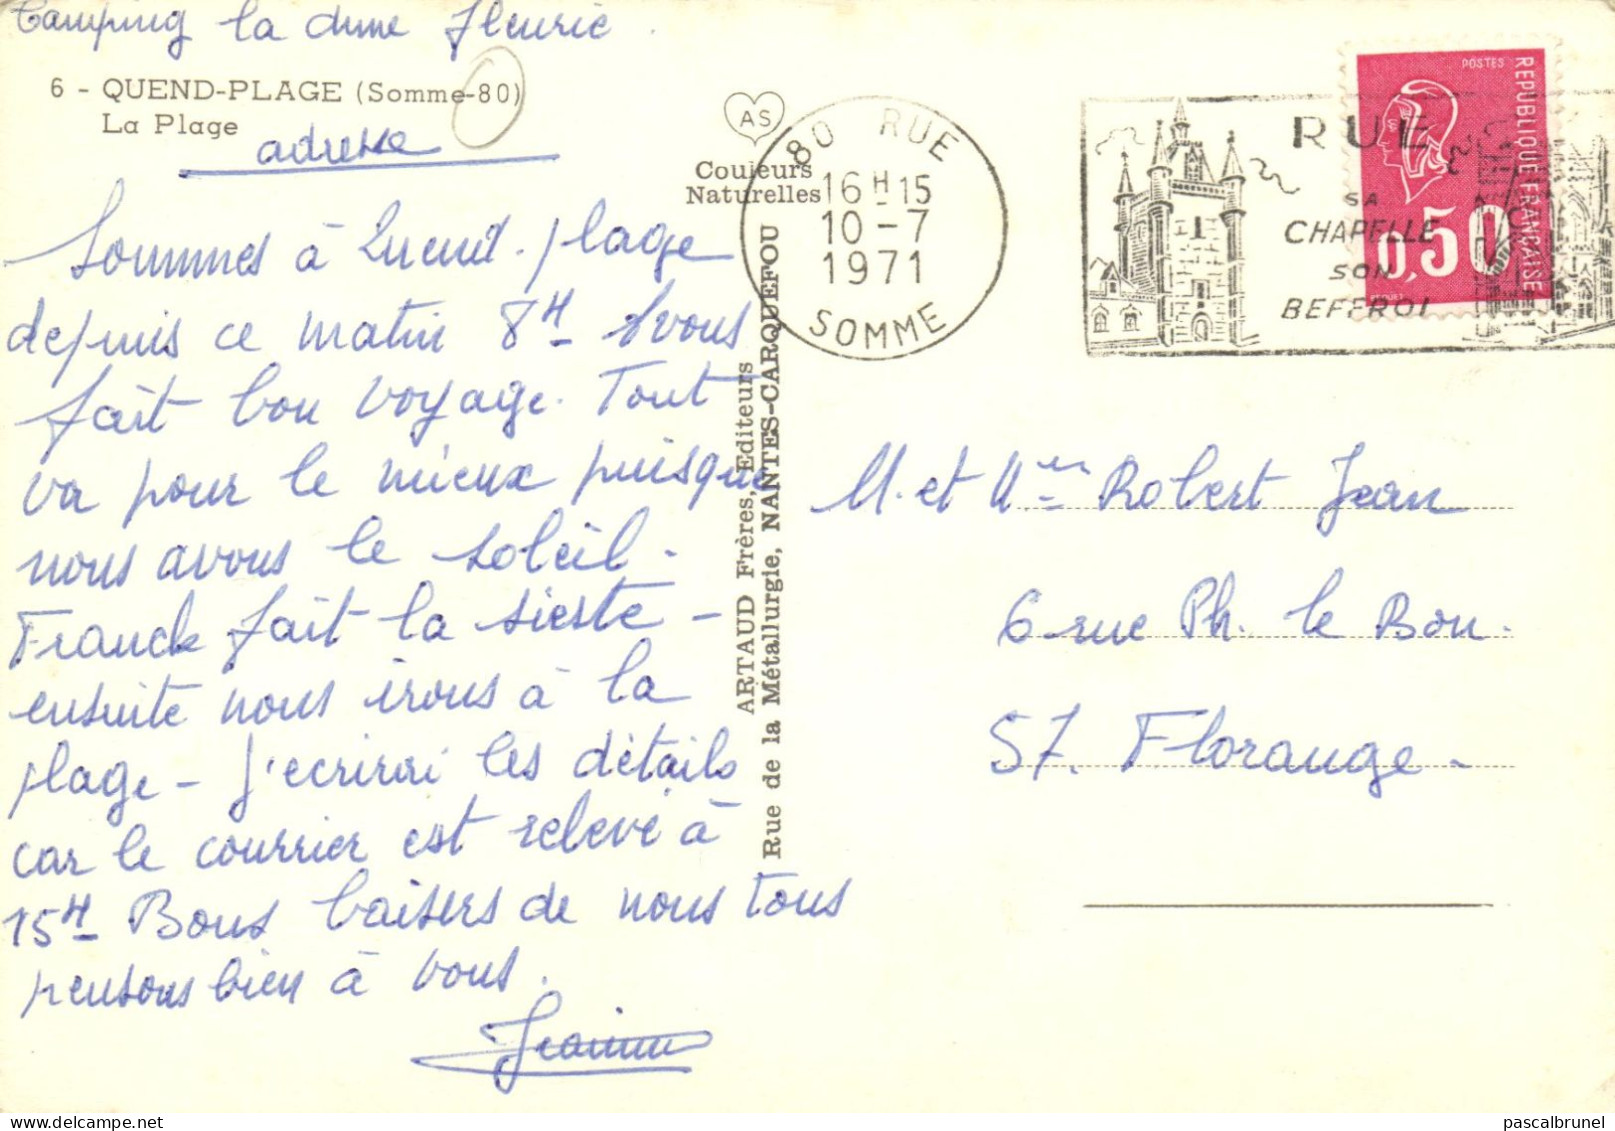 Camping la dune fleurie.
6 - QUEND-PLAGE (Somme-80)
La Plage
adresse
AS
Couleurs
Naturelles
Sommes à Quend-plage
depuis ce matin 8H Avons
fait bon voyage. Tout
va pour le mieux puisque
nous avons le soleil -
Franck fait la sieste -
ensuite nous irons à la
plage - J'écrirai les détails
car le courrier est relevé à
15H Bons baisers de nous tous
pensons bien à vous.
Jeannine
ARTAUD Frères, Editeurs
Rue de la Métallurgie, NANTES-CARQUEFOU
80 RUE
16H15
10-7
1971
SOMME
RUE
SA
CHAPELLE
SON
BEFFROI
POSTES
REPUBLIQUE FRANÇAISE
0,50
M. et Mme Robert Jean
6 rue Ph. le Bon.
57. Florange -
pascalbrunel